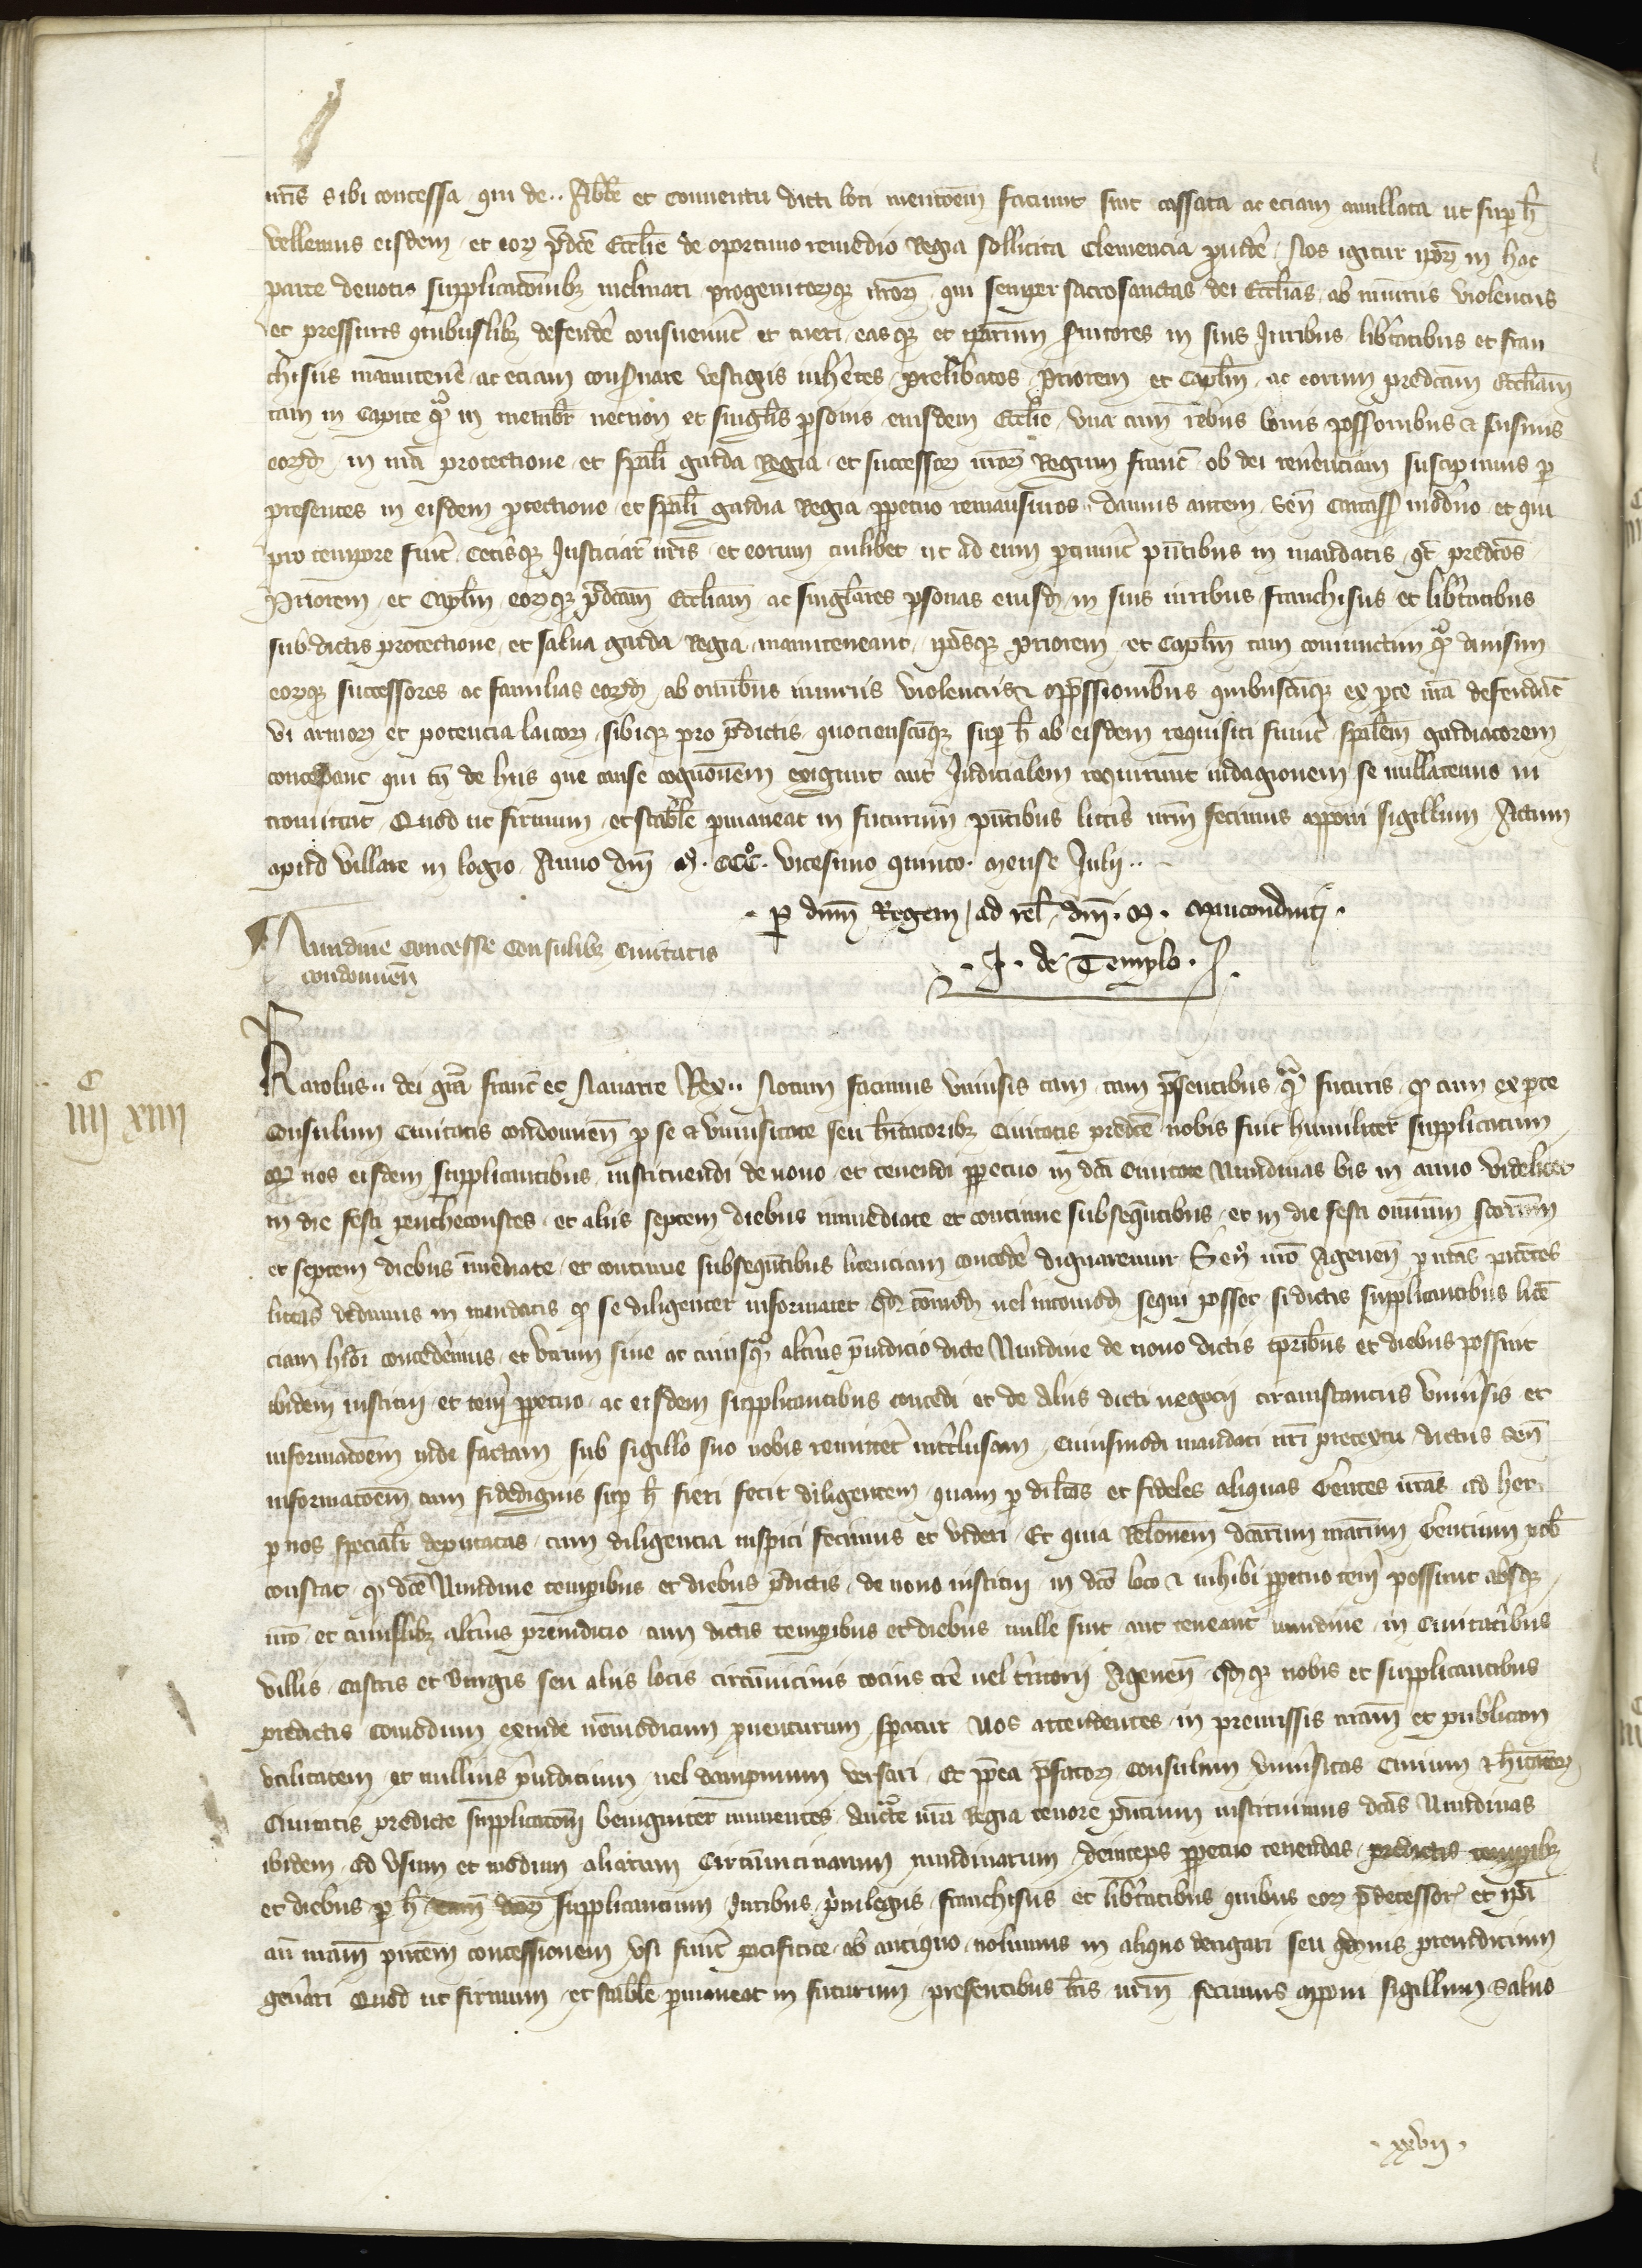 nr̄is sibi concessa qui de .. Abbē et conuentu dicti loci mencōem faciunt sint cassata ac eciam anullata ut sup h̄
vellemus eisdem et eoꝝ p̄dc̄e Ecclīe de oportuno remedio Regia sollicita Clemencia prouidē Nos igitur ipōꝝ in hac
parte deuotis supplicacōnibꝫ inclinati progenitoꝝqꝫ nr̄oꝝ qui semper sacrosanctas dei Ecclīas ab iniuriis violenciis
et pressuris quibuslibꝫ defendē consueuer̄t et tueri easqꝫ et ip̄arum seruitores in suis Iuribus libertatibus et fran
chisiis manutenē ac eciam conseruare vestigiis inherētes prelibatos Priorem et Capl̄m ac eorum predcām Ecclīam
tam in Capite qm̄ in membr̄ necnon et singlīs p̄sonis eiusdem Ecclīe vna cum rebus bonis possessionibus & iuribus
eorꝝd in nr̄a protectione et sp̄ali garda Regia et successoꝝ nr̄oꝝ Regum franc̄ ob dei reuerenciam suscipimus p
presentes in eisdem protectione et sp̄ali gardia Regia ꝑpetuo remansuros damus autem Sen̄ Carcass̄ moderno et qui
pro tempore fuer̄t Ceterisqꝫ Iusticiar̄ nr̄is et eorum cuilibet ut ad eum ꝑtinuer̄t pn̄tibus in mandatis q̄t predcōs
Priorem et Capl̄m eoꝝqꝫ p̄dcām Ecclīam ac singlāres ꝑsonas eiusd̄ in suis iuribus franchisiis et lib̄tatibus
sub dictis protectione et salua garda Regia manuteneant ip̄osqꝫ Priorem et Capl̄m tam coniunctim qm̄ diuisim
eoꝝqꝫ successores ac familias eorꝝd ab omībus iniuriis violenciis & opp̄ssionibus quibuscūqꝫ ex ꝑte nr̄a defendāt
vi armoꝝ et potencia laicoꝝ sibiqꝫ pro p̄dictis quocienscūqꝫ sup h̄ ab eisdem requisiti fuer̄t sp̄alem gardiatorem
concedant qui tn̄ de hiis que cause cognōnem exigunt aut Iudicialem requirunt indagionem se nullatenus in
tromittat Quod ut firmum et stabīle ꝑmaneat in futurum pn̄tibus litt̄is nr̄m fecimus apponi sigillum Actum
apud villare in logio Anno dn̄i M. CCC̊. vicesimo quinto mense Iulij ..
. ꝑ dn̄m Regem ad rel̄ dn̄i. M. Mauconduit .
. J. de Templo .
Nundine concesse Consulibꝫ Ciuitatis
condomien̄
C
iiij xiiij
Karolus .. dei grā franc̄ et Nauarre Rex .. Notum facimus vniuersis tam tam p̄sentibus qm̄ futuris qd cum ex ꝑte
Consulum Ciuitatis condomien̄ p se & vniuersitate seu h̄itatoribꝫ Ciuitatis predc̄e nobis fuit humiliter supplicatum
qd nos eisdem supplicantibus instituendi de nouo et tenendi ꝑpetuo in dc̄a Ciuitate Nundinas bis in anno videlicet
in die festi penthecoustes et aliis septem diebus immediate et continue subsequētibus et in die festi omnium sc̄orum
et septem diebus īmediate et continue subsequētibus licenciam concedē dignaremur Sen̄ nr̄o Agenen̄ p nr̄as patētes
litt̄as dedimus in mandatis qd se diligenter informaret qd cōmod̄ uel incomod̄ sequi posset si dictis supplicantibus licē
ciam h̄mōi concederemus et vtrum sine ac cuiusqm̄ alterius p̄iudicio dicte Nundine de nouo dictis tꝑibus et diebus possent
ibidem institui et teneri ꝑpetuo ac eisdem supplicantibus concedi et de aliis dicti negocii circunstanciis vniuersis et
informacōem inde factam sub sigillo suo nobis remitteret interclusam Cuiusmodi mandati nr̄i pretextu dictus Sen̄
informacōem cum fidedignis sup h̄ fieri fecit diligentem quam p dil̄cos et fideles aliquas Gentes nr̄as ad hec
p nos specialit̄ deputatas cum diligencia inspici fecimus et videri Et quia Relōnem dc̄arum nr̄arum Gentium nob̄
constat qd dc̄e Nundine temporibus et diebus p̄dictis de nouo institui in dc̄o loco & inhibi ꝑpetuo teneri possunt absqꝫ
nr̄o et cuiuslibꝫ alterius preiudicio cum dictis temporibus et diebus nulle sint aut teneantur nundine in Ciuitatibus
villis castris et burgis seu aliis locis circūuicinis tocius tr̄e uel territorii Agenen̄ qdqꝫ nobis et supplicantibus
predictis comodum exinde nōmodicum prouenturum speratur Nos attendentes in premissis nr̄am et publicam
vtilitatem et nullius preiudicium uel dampnum versari Et ꝑp̄ea p̄fatoꝝ Consulum vniuersitas Ciuium & h̄itatoꝝ
Ciuitatis predicte supplicacōni benigniter annuentes auct̄e nr̄a Regia tenore pn̄cium instituimus dc̄as Nundinas
ibidem ad vsum et modum aliarum Circūuicinarum nundinarum deinceps ꝑpetuo tenendas predictis temporibꝫ
et diebus p h̄ supplicantium Iuribus priuilegiis franchisiis et lib̄tatibus quibus eoꝝ p̄decessor̄ et ip̄i
an̄ nr̄am pn̄tem concessionem vsi fuer̄t pacifice ab antiquo nolumus in aliquo derogari seu qduis preiudicium
generari Quod ut firmum et stabīle ꝑmaneat in futurum presentibus l̄ris nr̄m fecimus apponi sigillum Saluo
. xxvij .